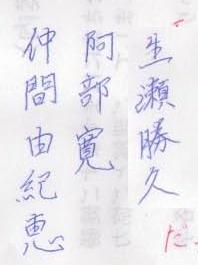 生瀬勝久
阿部寛
仲間由紀恵
だ